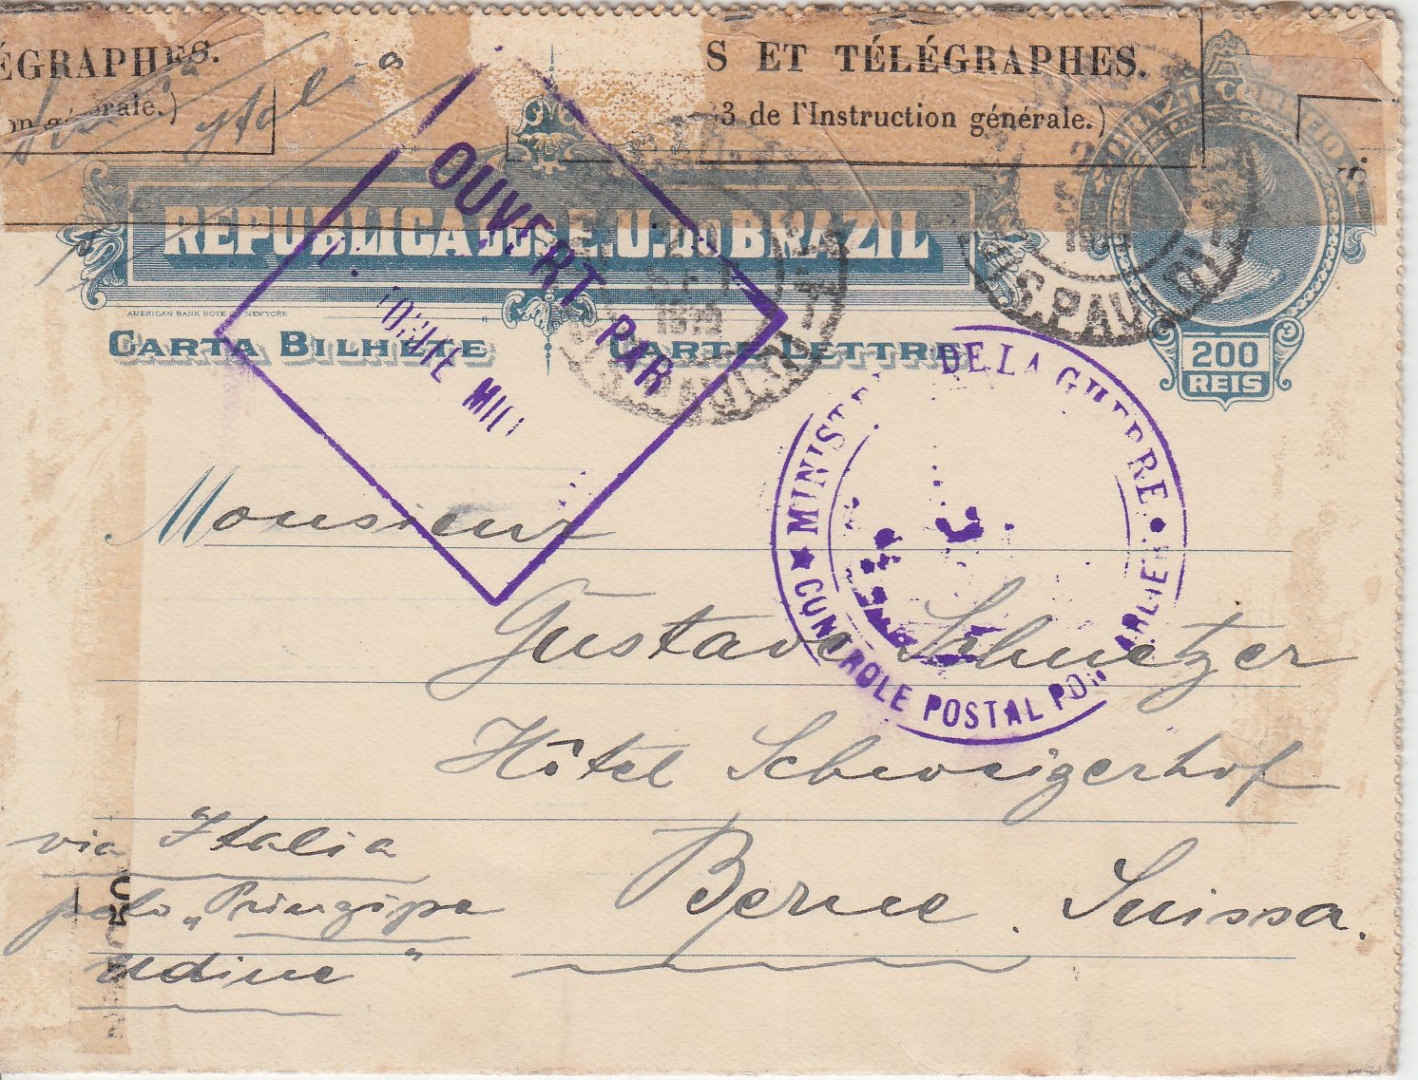 ÉGRAPHES.
S ET TÉLÉGRAPHES.
érale.)
3 de l'Instruction générale.)
Italia
BRAZIL CORREIO
REPUBLICA DOS E.U. DO BRAZIL
AMERICAN BANK NOTE NEW YORK
CARTA BILHETE
CARTE LETTRE
200
REIS
S. PAULO
OUVERT PAR
MINISTÈRE DE LA GUERRE
CONTRÔLE POSTAL PONTARLIER
Monsieur
Gustave Schuetzer
Hôtel Schweizerhof
Berne. Suissa.
via Italia
pelo "Principe
Udine"